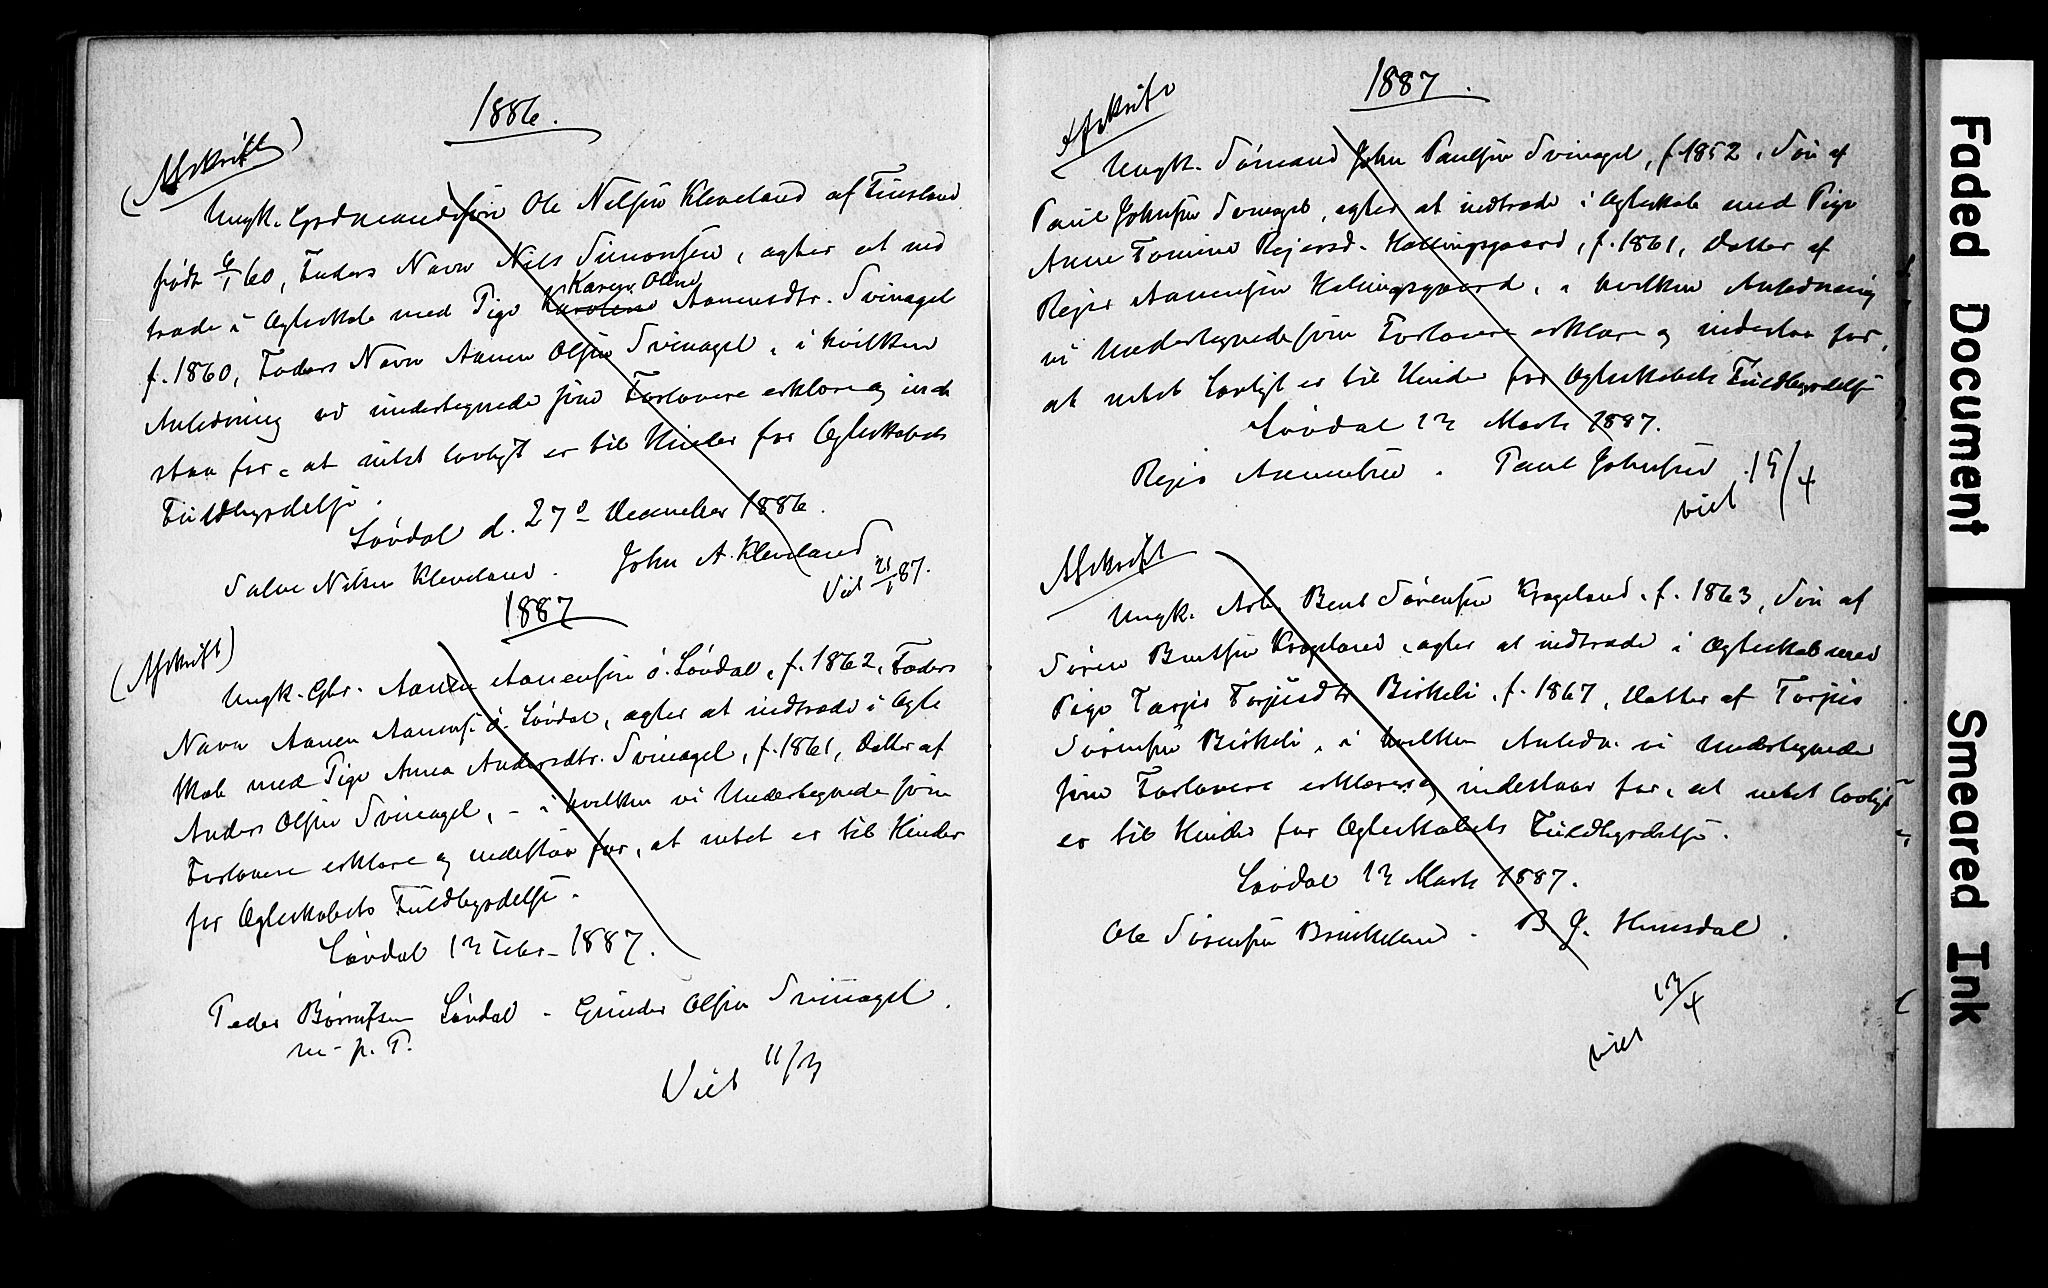 1886.
(Afskrift)
Ungk. Grdmandssøn Ole Nilsen Kleveland af Finsland
født 6/1 60, Faders Navn Nils Simonsen, agter at ind
Karen Oline
træde i Ægteskab med Pige Karoline Aanensdtr. Svinagel
f. 1860, Faders Navn Aanen Olsen Svinagel, i hvilken
Anledning vi undertegnede som Forlovere erklære og inde
staa for, at intet lovligt er til Hinder for Ægteskabets
Fuldbyrdelse.
Løvdal d. 27de December 1886.
Salve Nilsen Kleveland. John A. Kleveland
Viet 21/1 87.
1887
(Afskrift)
Ungk. Gbr. Aanen Aanensen ø. Løvdal, f. 1862, Faders
Navn Aanen Aanens. ø. Løvdal, agter at indtræde i Ægte
skab med Pige Anna Andersdtr. Svinagel, f. 1861, Datter af
Anders Olsen Svinagel, - i hvilken vi Undertegnede som
Forlovere erklære og indestaa for, at intet er til Hinder
for Ægteskabets Fuldbyrdelse.
Løvdal 13 Febr. 1887.
Peder Løvdal - Gunder Olsen Svinagel.
m. p. P.
Viet 11/3
1887.
Afskrift
Ungk. Sømand John Paulsen Svinagel, f. 1852, Søn af
Paul Johnsen Svinagel, agter at indtræde i Ægteskab med Pige
Anne Tomine Rejersd. Hallingsgaard, f. 1861, Datter af
Rejer Aanensen Halingsgaard, i hvilken Anledning
vi Undertegnede som Forlovere erklære og indestaa for,
at intet lovligt er til Hinder for Ægteskabets Fuldbyrdelse
Løvdal 13 Marts 1887.
Rejer Aanensen. Paul Johnsen.
viet 15/4
Afskrift
Ungk. Arb. Bent Sørensen Krogeland, f. 1863, Søn af
Søren Bentsen Krogeland, agter at indtræde i Ægteskab med
Pige Tarjer Torjusdtr Birkeli, f. 1867, Datter af Torjus
Sørensen Birkeli, i hvilken Anledn. vi Undertegnede
som Forlovere erklærer og indestaar for, at intet lovligt
er til Hinder for Ægteskabets Fuldbyrdelse.
Løvdal 13 Marts 1887.
Ole Sørensen Brinkeland. B J. Hunsdal.
viet 13/4
Faded Document
Smeared Ink